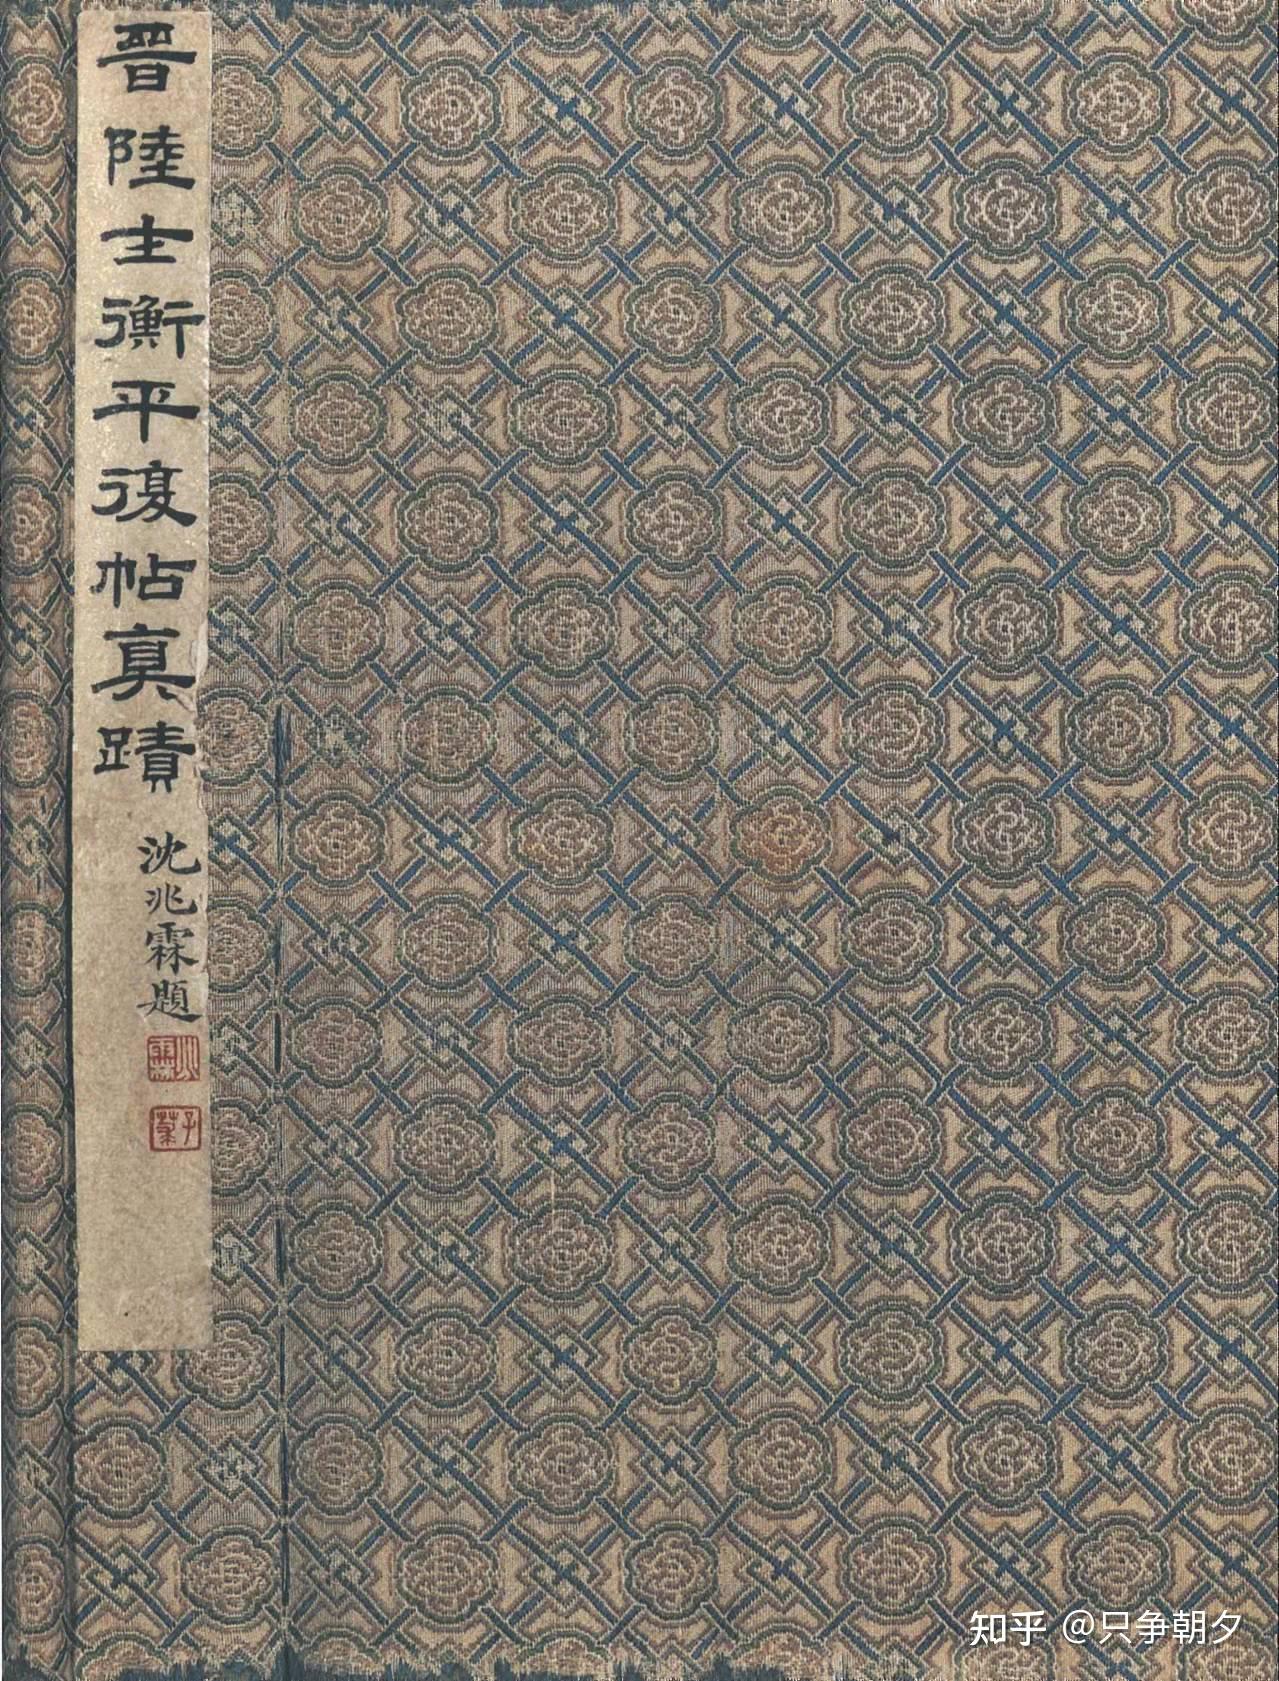 晉陸士衡平復帖真蹟
沈兆霖題
兆霖
子菉
知乎 @只争朝夕